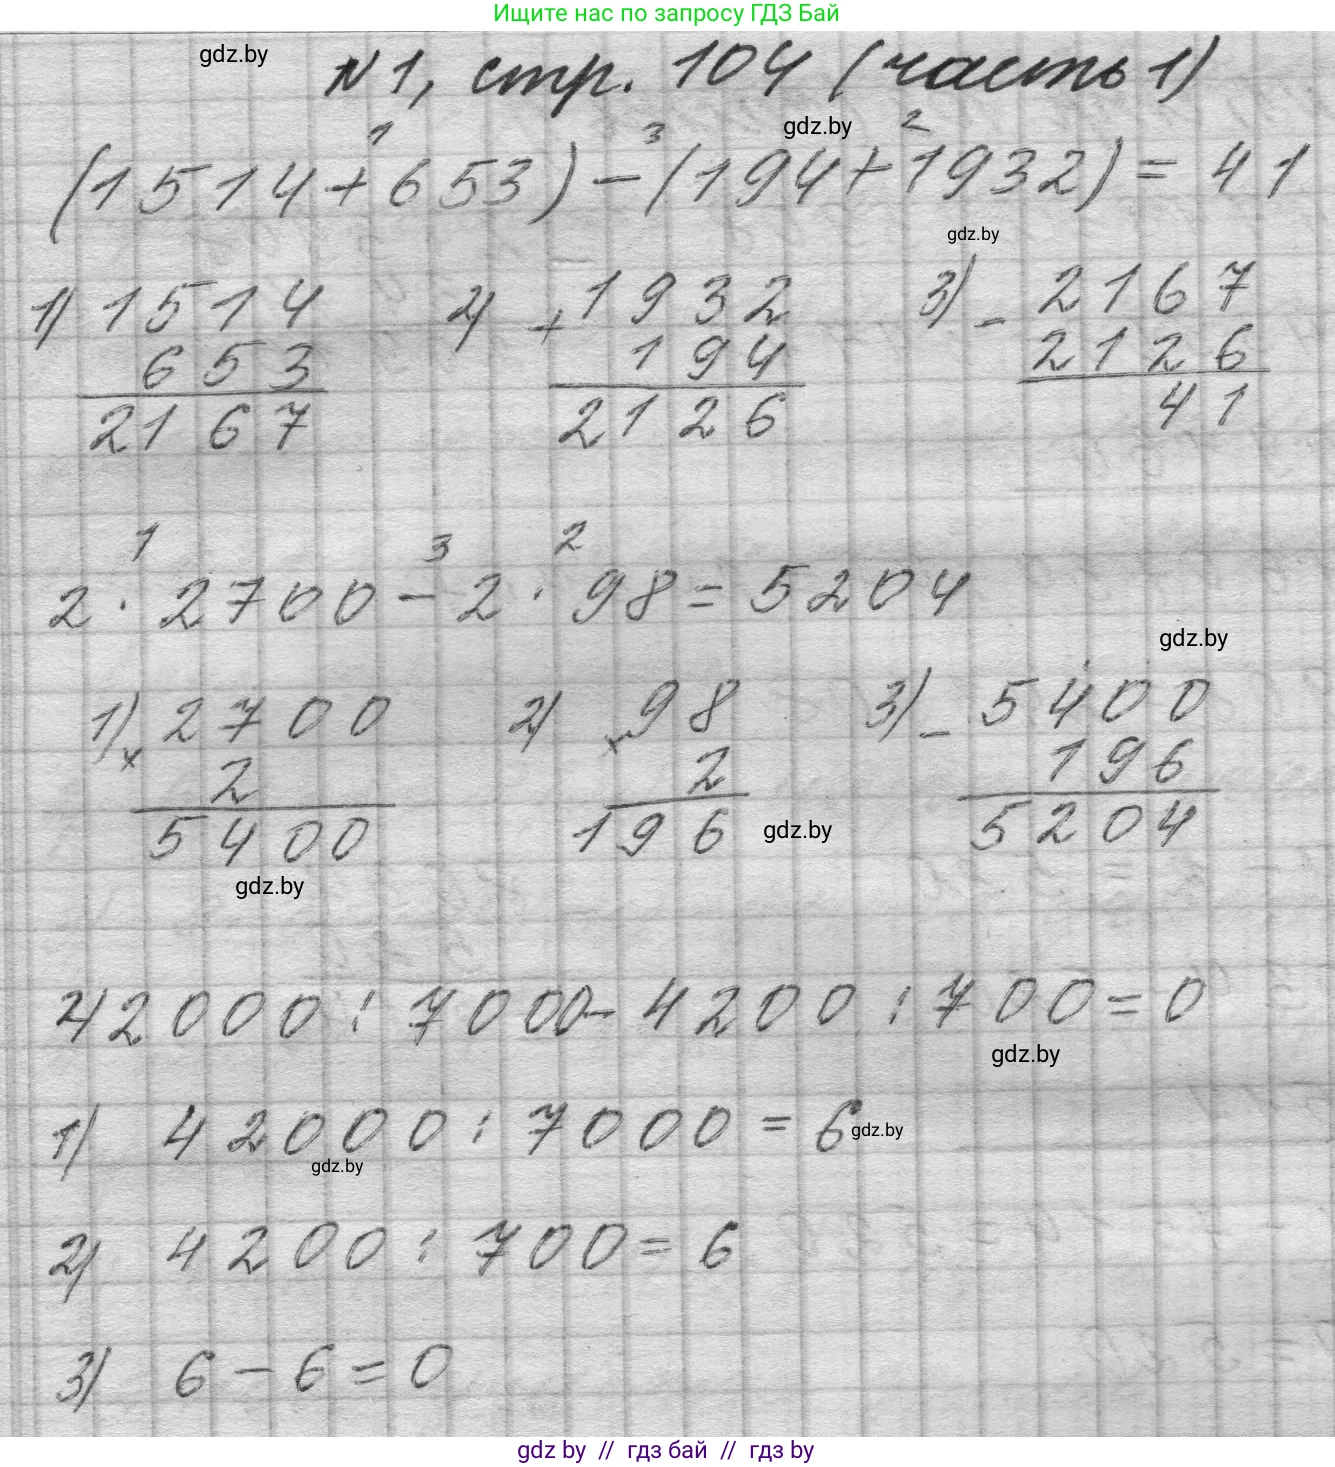 Ищите нас по запросу ГДЗ Бай
gdz.by
№1, стр. 104 (часть 1)
gdz.by
1 3 2
(1514+653)-(194+1932)=41
gdz.by
1) 1514 2) + 1932 3) - 2167
653 194 2126
2167 2126 41
1 3 2
2·2700-2·98=5204
gdz.by
1) x 2700 2) x 98 3) - 5400
2 2 196
5400 196 5204
gdz.by
gdz.by
42000:7000-4200:700=0
gdz.by
1) 42000:7000=6
gdz.by
gdz.by
2) 4200:700=6
3) 6-6=0
gdz by // гдз бай // гдз by